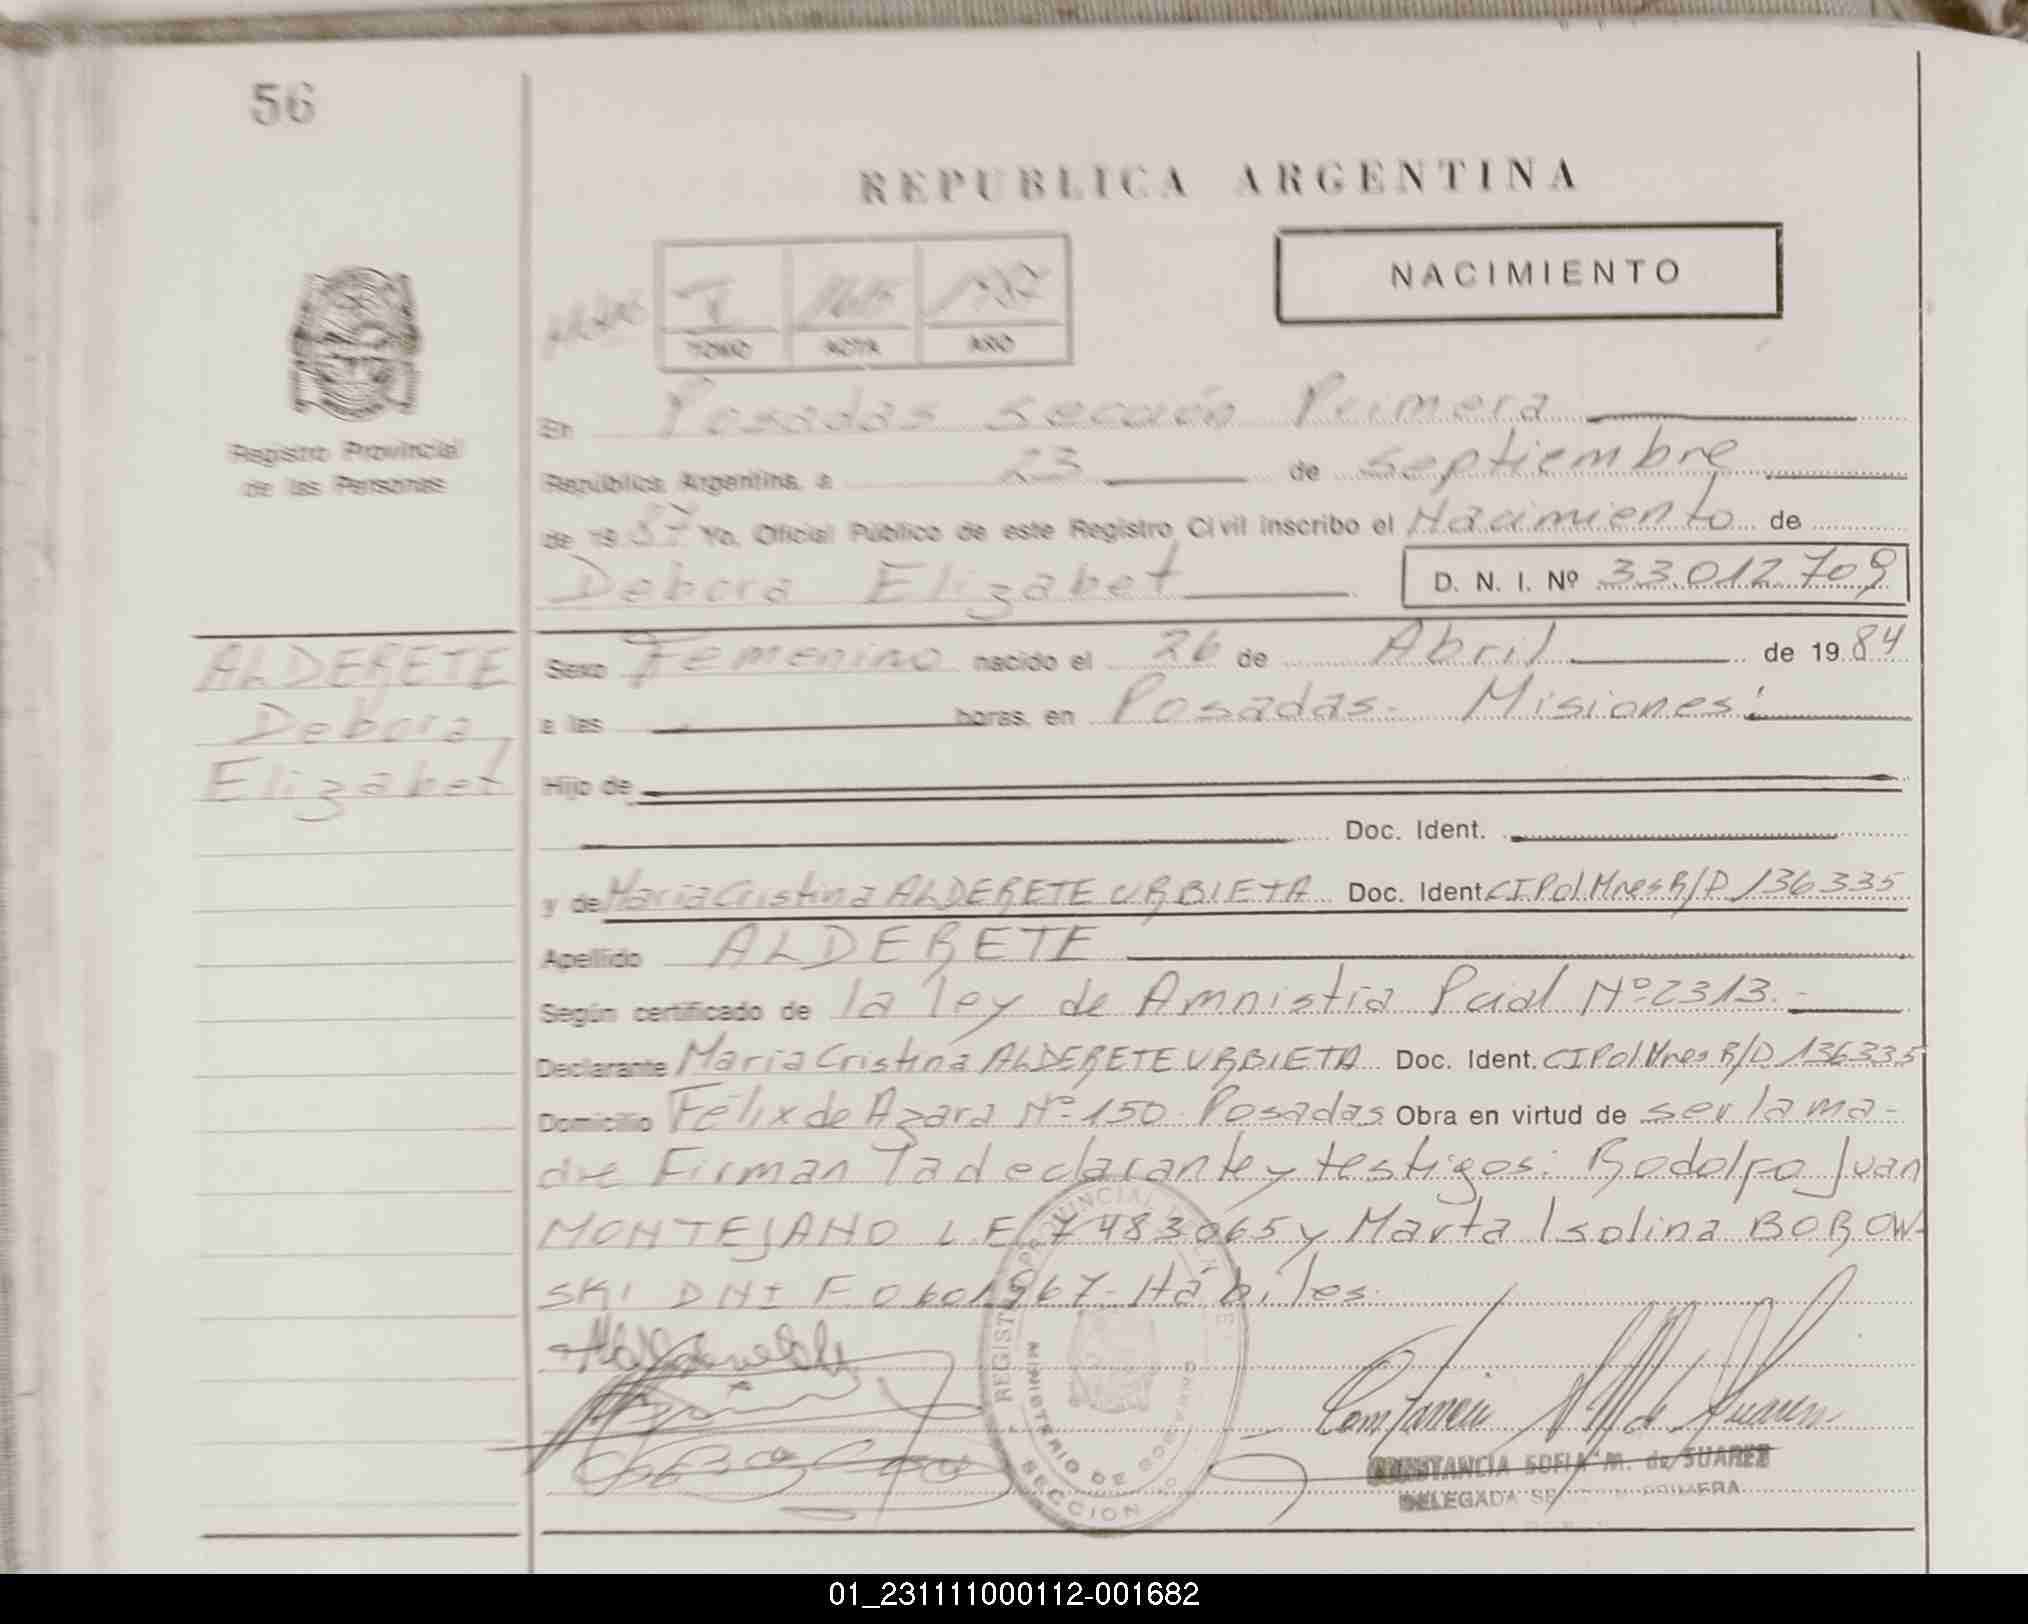 56
REPUBLICA ARGENTINA
NACIMIENTO
V
TOMO ACTA AÑO
Registro Provincial
de las Personas
En Posadas Sección Primera
República Argentina, a 23 de septiembre
de 1987 Yo, Oficial Público de este Registro Civil inscribo el Nacimiento de
Debora Elizabet D. N. I. Nº 33.012.709
ALDERETE
Debora
Elizabet
Sexo Femenino nacido el 26 de Abril de 1984
a las horas, en Posadas - Misiones:
Hijo de
Doc. Ident.
y de Maria Cristina ALDERETE URBIETA Doc. Ident. CI Pol. Mnes R/P 136335
Apellido ALDERETE
Según certificado de la ley de Amnistía Pcial Nº 2313.-
Declarante Maria Cristina ALDERETE URBIETA Doc. Ident. CI Pol. Mnes R/P 136335
Domicilio Félix de Azara Nº 150 - Posadas Obra en virtud de ser la ma-
dre Firman la declarante y testigos: Rodolfo Juan
MONTEJANO L.E. 7483065 y Marta Isolina BOROW-
SKI DNI F 0601967 - Hábiles.
REGISTRO PROVINCIAL DE
MINISTERIO DE GOBIERNO
SECCION
CONSTANCIA SOFIA M. de SUAREZ
DELEGADA SECCION PRIMERA
01_231111000112-001682